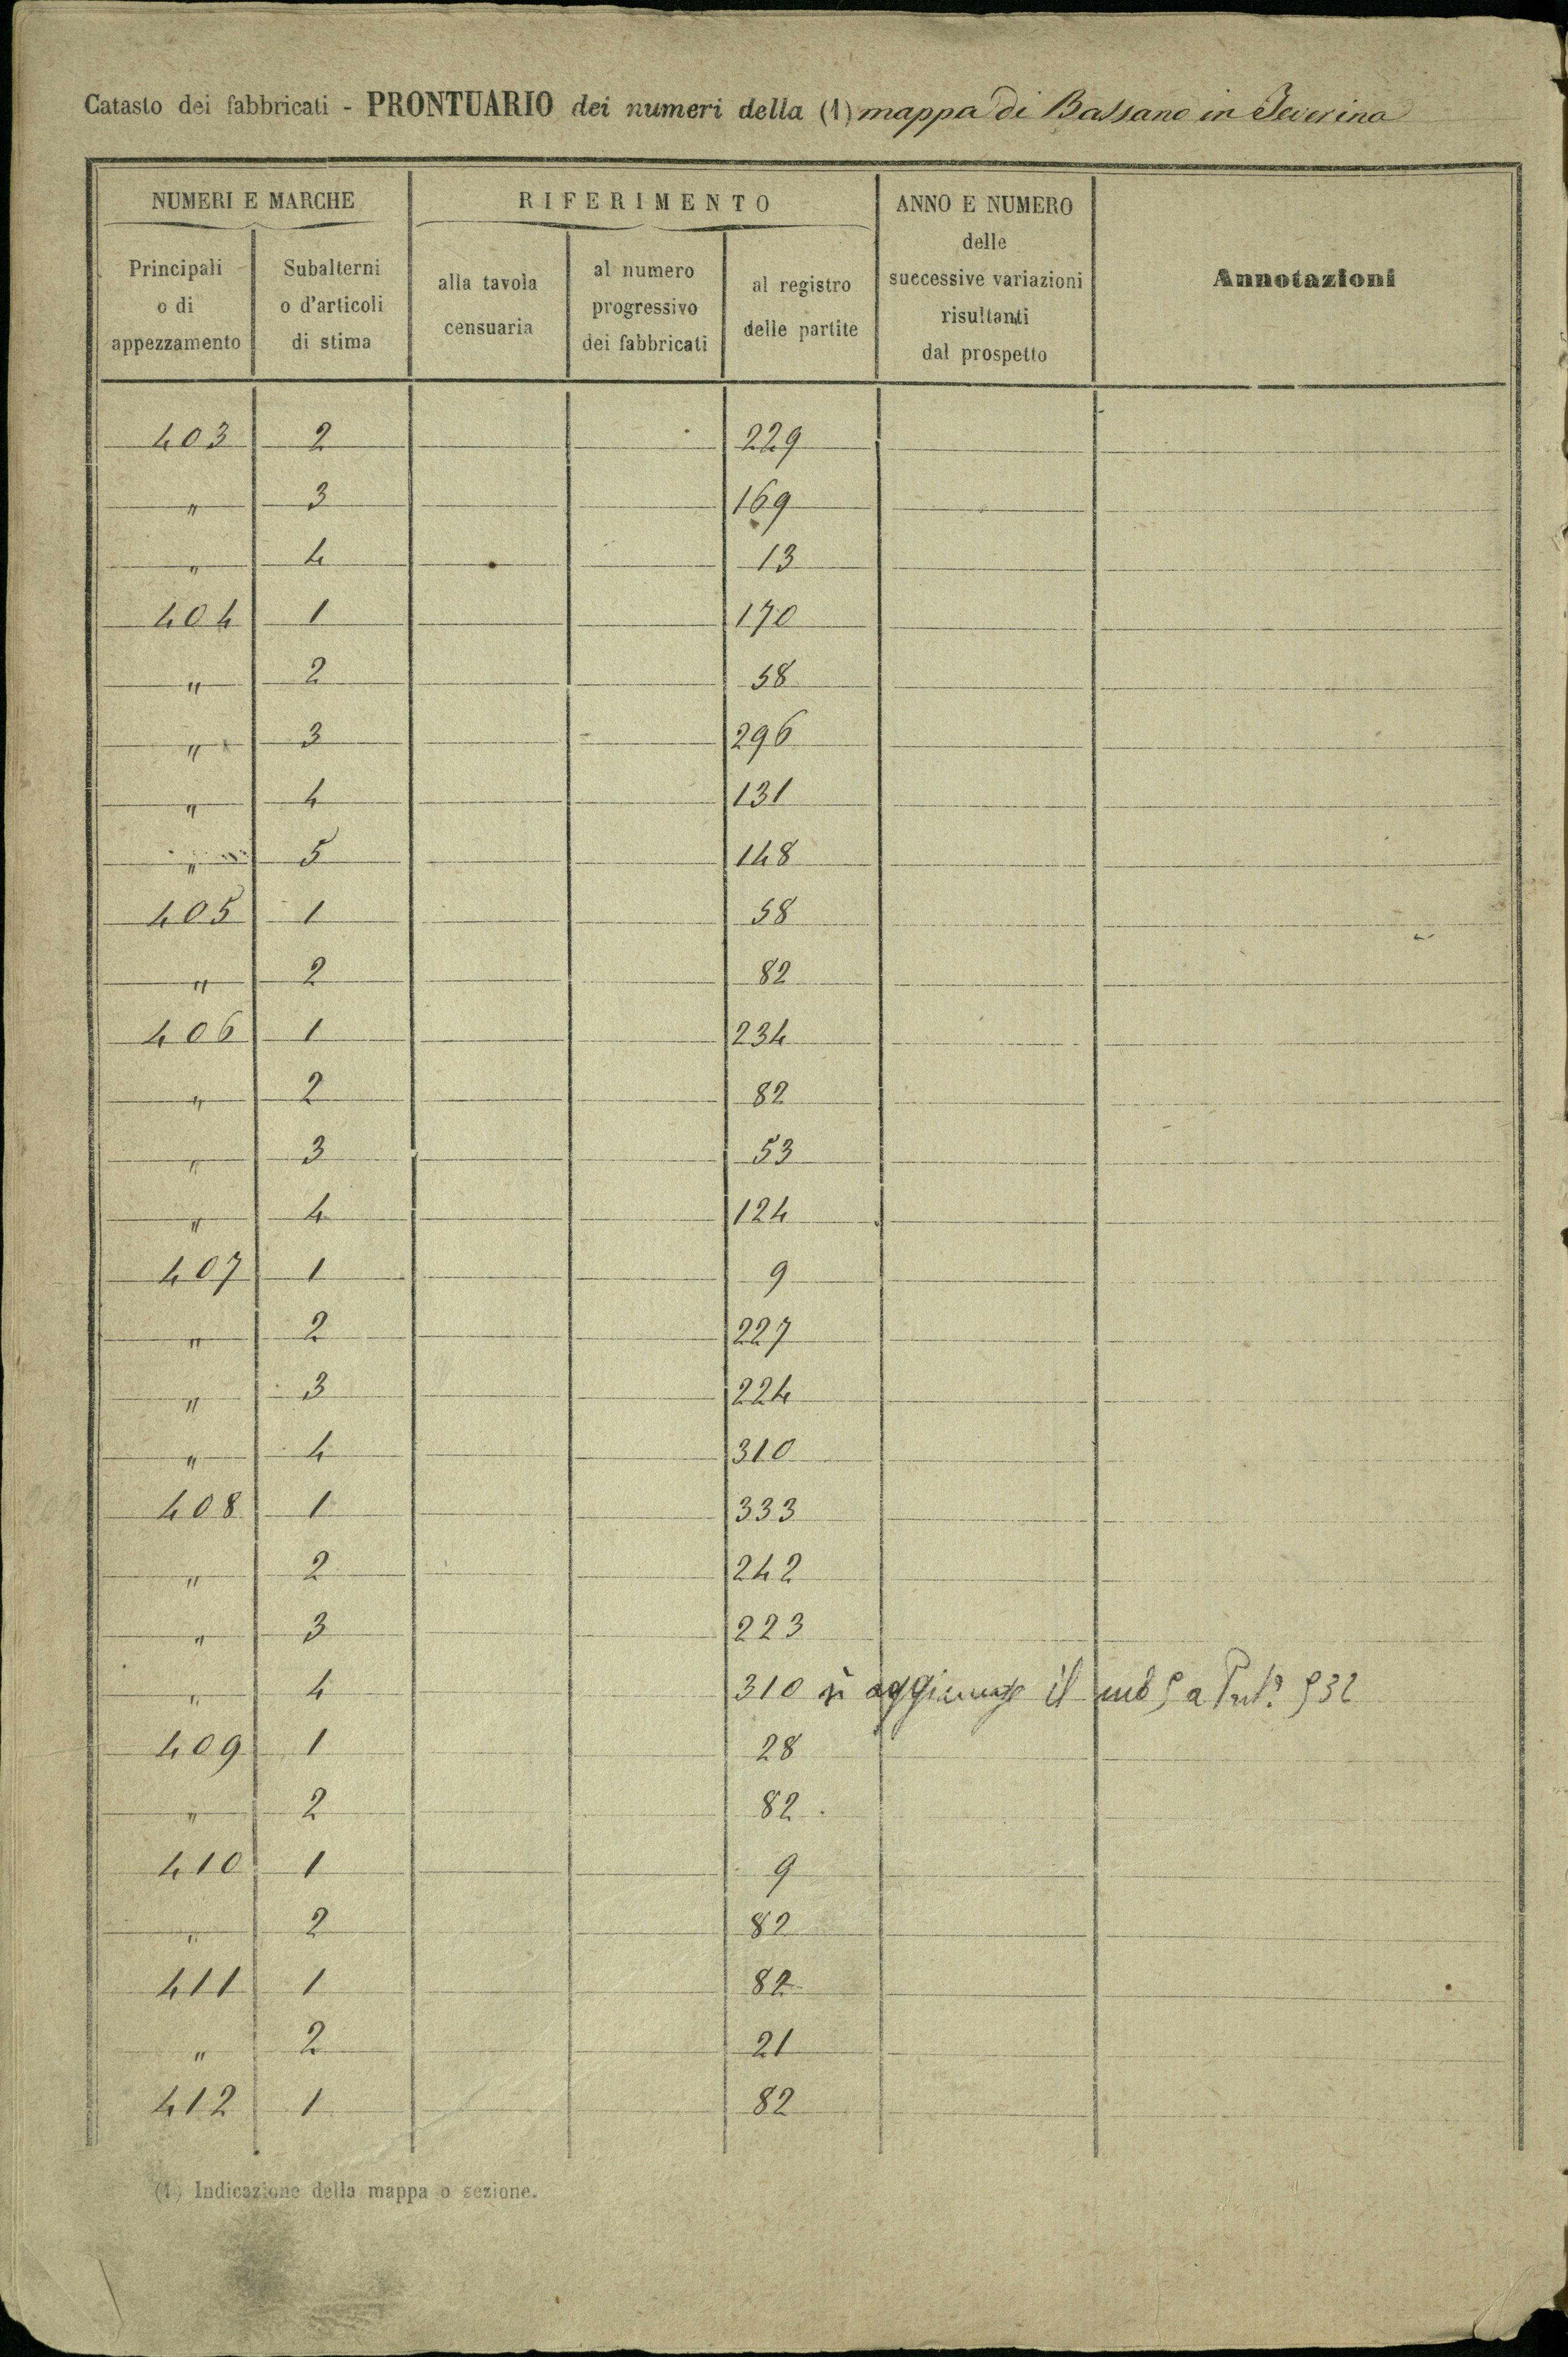 Catasto dei fabbricati - PRONTUARIO dei numeri della (1) mappa di Bassano in Teverina
NUMERI E MARCHE
RIFERIMENTO
ANNO E NUMERO
delle
successive variazioni
risultanti
dal prospetto
Annotazioni
Principali
o di
appezzamento
Subalterni
o d'articoli
di stima
alla tavola
censuaria
al numero
progressivo
dei fabbricati
al registro
delle partite
403 2 229
" 3 169
" 4 13
404 1 170
" 2 58
" 3 296
" 4 131
" 5 148
405 1 58
" 2 82
406 1 234
" 2 82
" 3 53
" 4 124
407 1 9
" 2 227
" 3 224
" 4 310
408 1 333
" 2 242
" 3 223
" 4 310 si aggiunge il sub 5 a 532
409 1 28
" 2 82
410 1 9
" 2 82
411 1 82
" 2 21
412 1 82
(1) Indicazione della mappa o sezione.